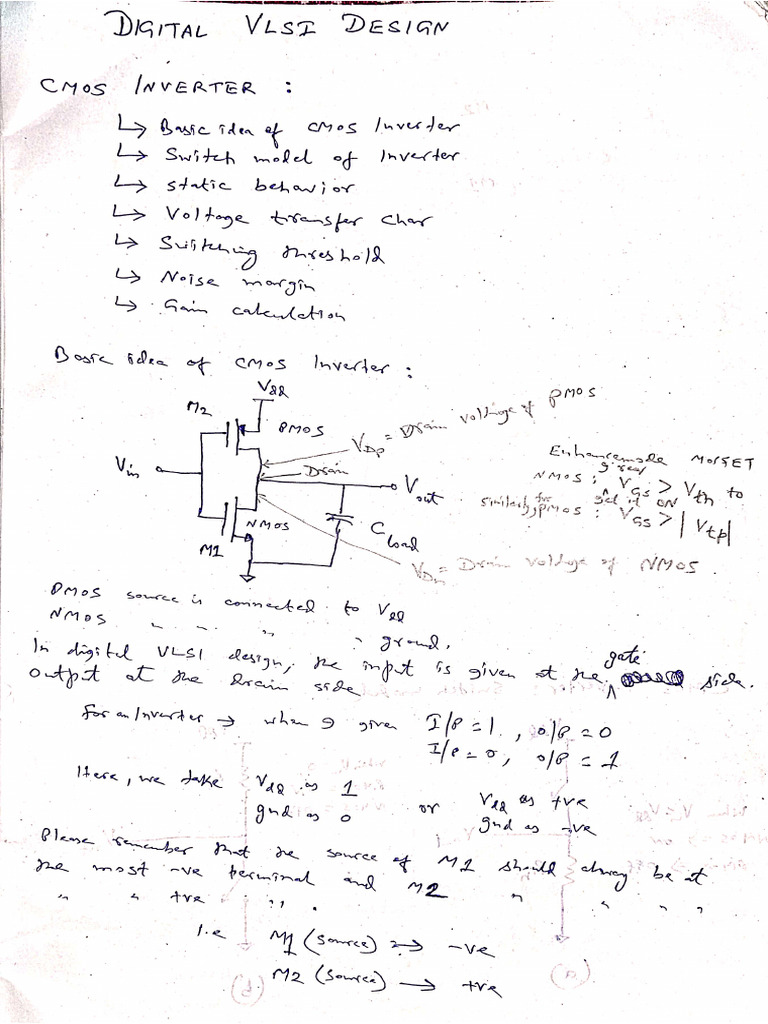 DIGITAL VLSI DESIGN
CMOS INVERTER :
↳ Basic idea of CMOS Inverter
↳ Switch model of Inverter
↳ static behavior
↳ Voltage transfer char
↳ Switching threshold
↳ Noise margin
↳ Gain calculation
Basic idea of CMOS Inverter :
Vdd
M2
PMOS
VDp = Drain voltage of PMOS
Vin
Drain
Vout
Enhancemode MOSFET
NMOS : VGS > Vth to
get it ON
similarly, for PMOS : VGS > |Vtp|
NMOS
M1
Cload
VDn = Drain voltage of NMOS.
PMOS source is connected to Vdd
NMOS " " " " ground.
In digital VLSI design, the input is given at the gate side.
output at the drain side
For an Inverter → when I given I/P = 1, O/P = 0
I/P = 0, O/P = 1
Here, we take Vdd as 1 or Vdd as +ve
gnd as 0 gnd as -ve
Please remember that the source of M1 should always be at
the most -ve terminal and M2 " " " "
" " +ve " .
i.e M1 (source) → -ve
M2 (source) → +ve